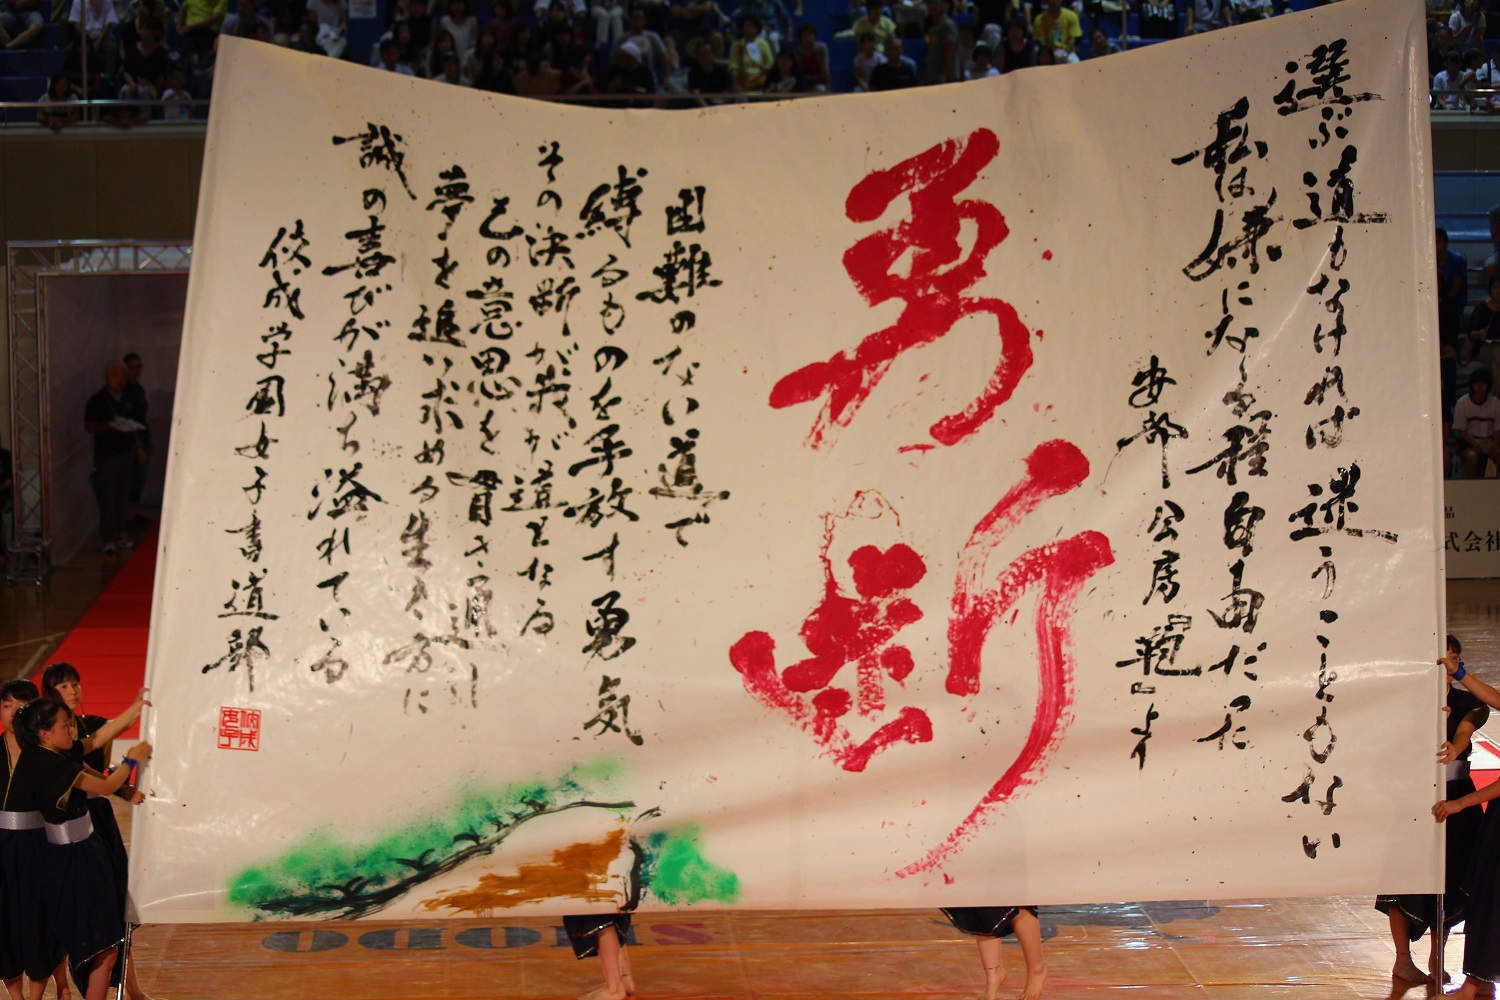 選ぶ道もなければ迷うこともない
私は嫌になる程自由だった
安部公房 より
勇断
困難のない道で
縛るものを手放す勇気
その決断が我が道となる
己の意思を貫き通し
夢を追い求める生き方に
誠の喜びが満ち溢れている
佼成学園女子書道部
佼成女子
品
式会社
SHODO